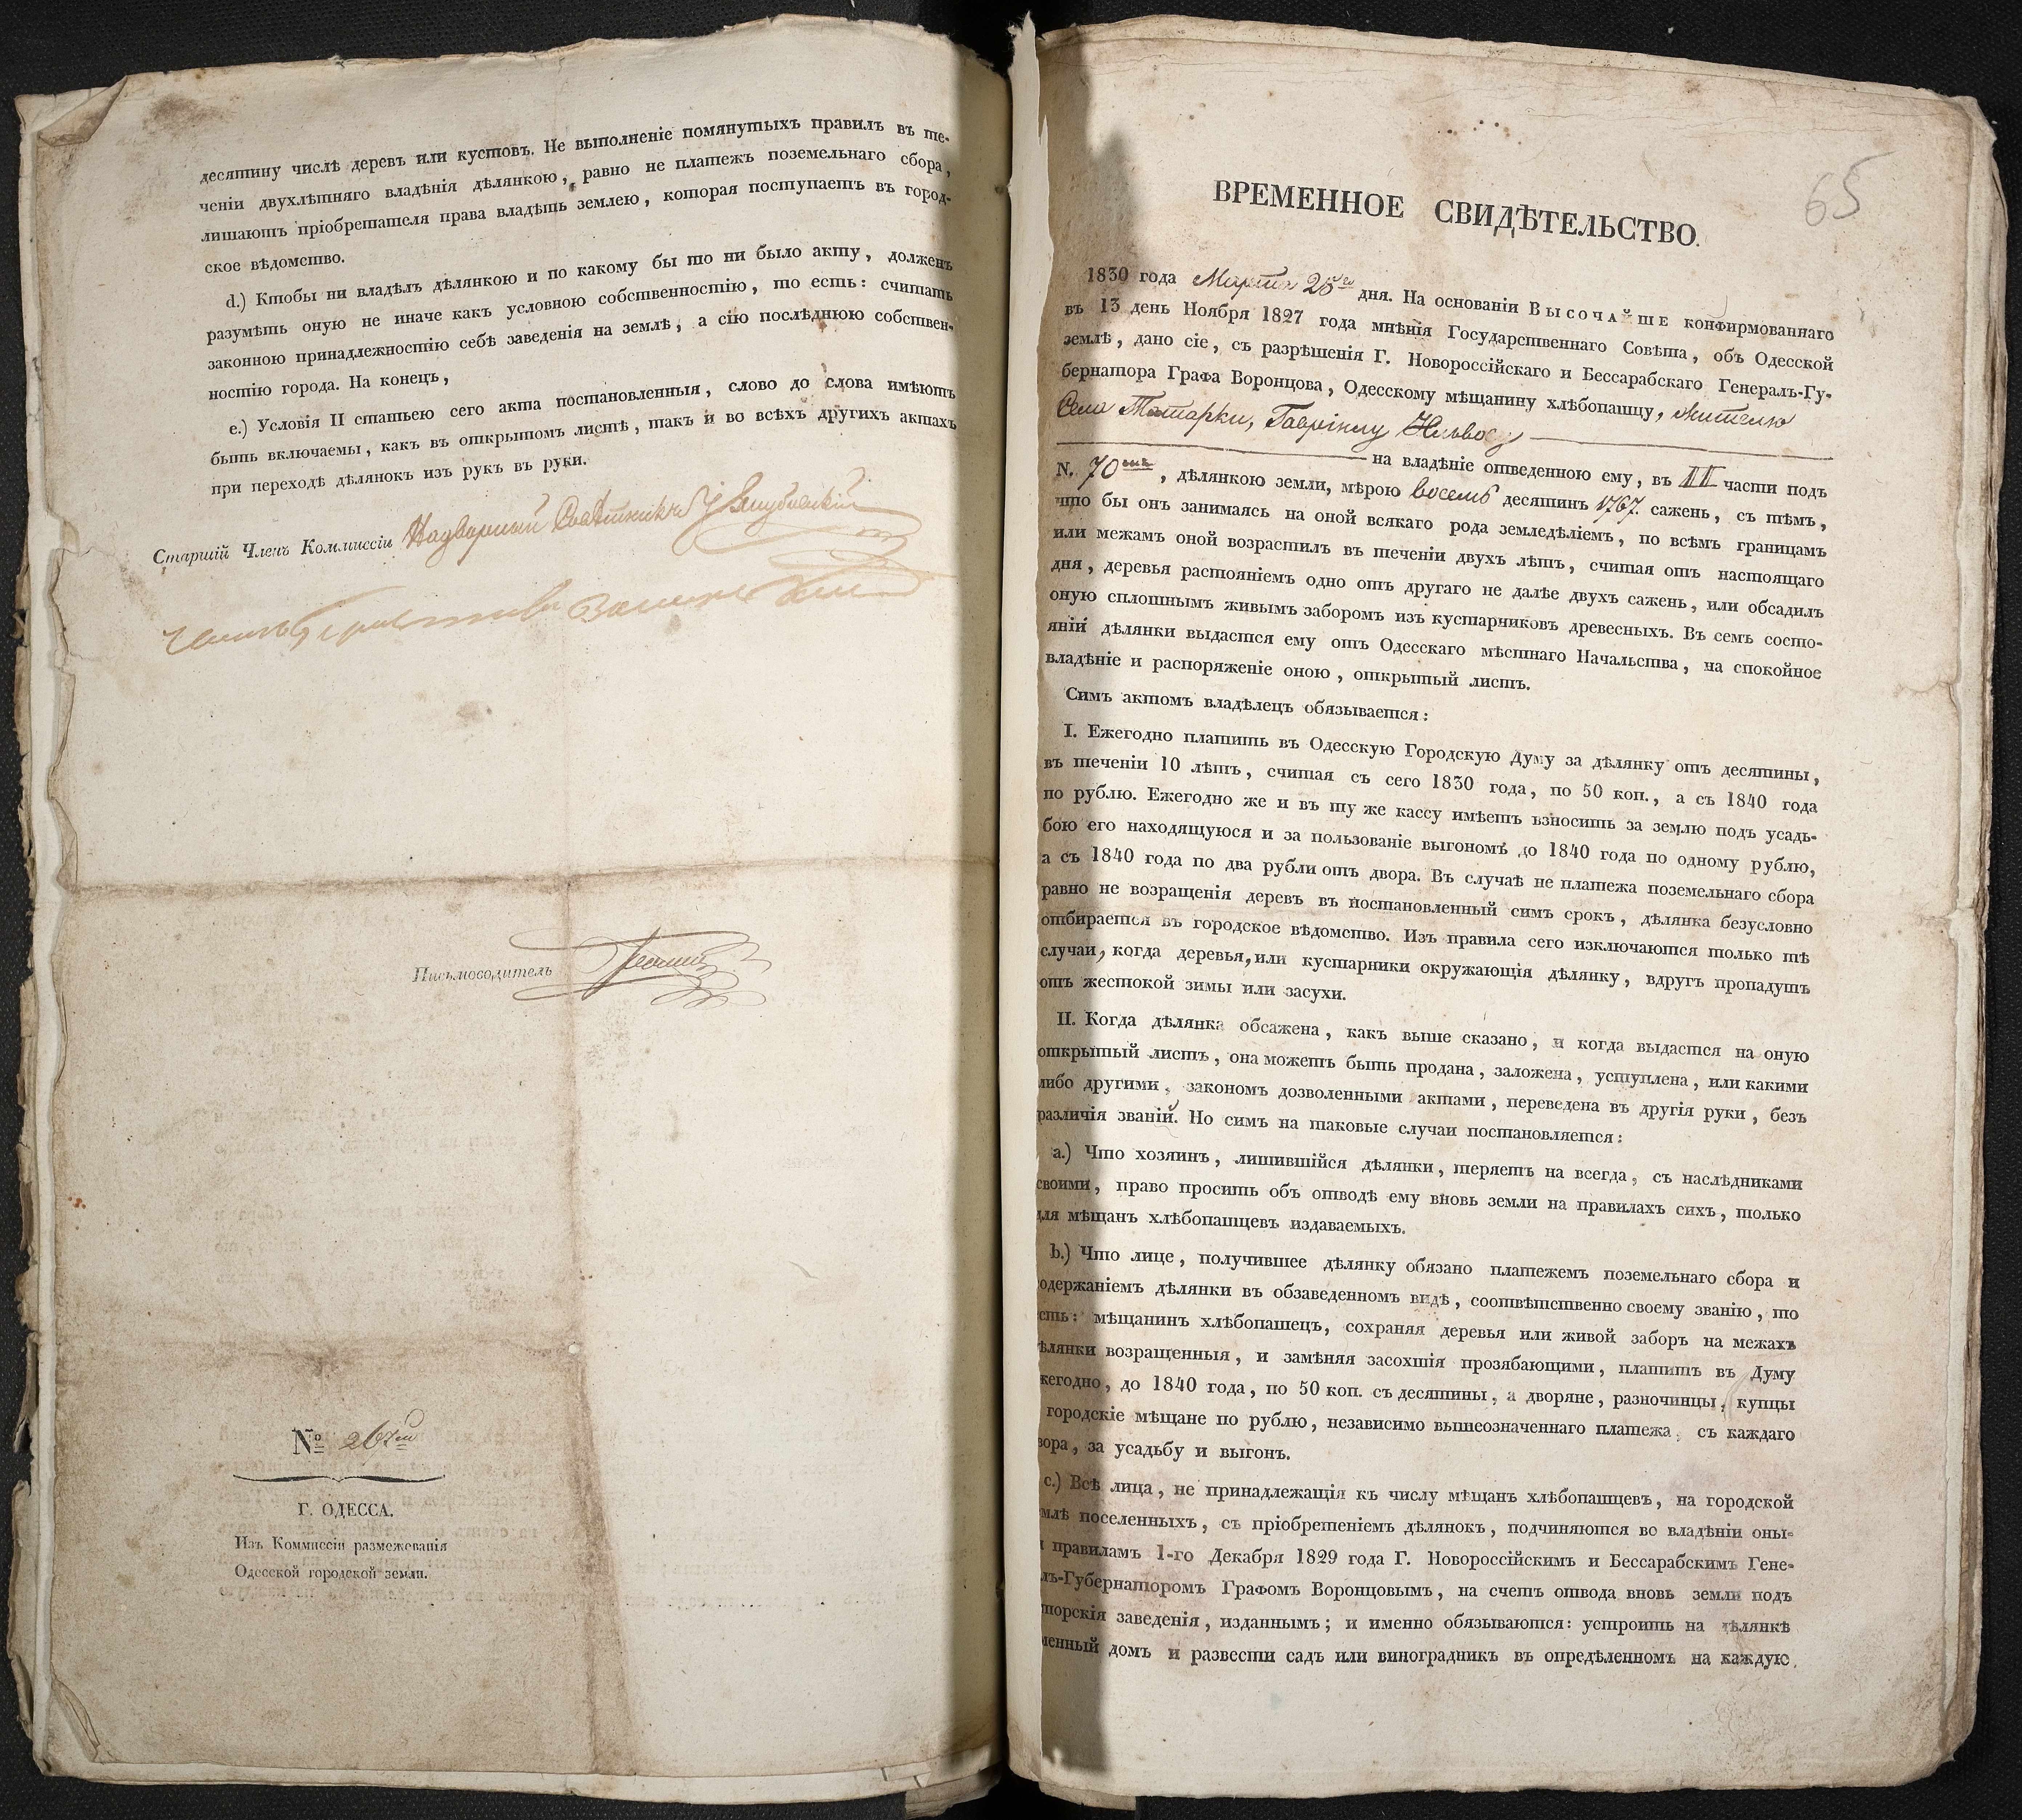 десятину числѣ деревъ или кустовъ. Не выполненіе помянутыхъ правилъ въ те-
ченіи двухлѣтняго владѣнія дѣлянкою, равно не платежъ поземельнаго сбора,
лишаютъ пріобретателя права владѣть землею, которая поступаетъ въ город-
ское вѣдомство.
d.) Ктобы ни владѣлъ дѣлянкою и по какому бы то ни было акту, долженъ
разумѣть оную не иначе какъ условною собственностію, то есть: считать
законною принадлежностію себѣ заведенія на землѣ, а сію послѣднюю собствен-
ностію города. На конецъ,
e.) Условія II статьею сего акта постановленныя, слово до слова имѣютъ
быть включаемы, какъ въ открытомъ листѣ, такъ и во всѣхъ другихъ актахъ
при переходѣ дѣлянокъ изъ рукъ въ руки.
Старшій Членъ Коммиссіи Надворный Совѣтникъ
Письмоводитель
№
Г. ОДЕССА.
Изъ Коммиссіи размежеванія
Одесской городской земли.
65
ВРЕМЕННОЕ СВИДѢТЕЛЬСТВО.
1830 года Марта дня. На основаніи Высочайше конфирмованнаго
въ 13 день Ноября 1827 года мнѣнія Государственнаго Совѣта, объ Одесской
землѣ, дано сіе, съ разрѣшенія Г. Новороссійскаго и Бессарабскаго Генералъ-Гу-
бернатора Графа Воронцова, Одесскому мѣщанину хлѣбопашцу, жителю
Села Татарки, Гаврінлу
на владѣніе отведенною ему, въ II части подъ
N. 70мъ, дѣлянкою земли, мѣрою восемь десятинъ 1767. сажень, съ тѣмъ,
что бы онъ занимаясь на оной всякаго рода земледѣліемъ, по всѣмъ границамъ
или межамъ оной возрастилъ въ теченіи двухъ лѣтъ, считая отъ настоящаго
дня, деревья растояніемъ одно отъ другаго не далѣе двухъ сажень, или обсадилъ
оную сплошнымъ живымъ заборомъ изъ кустарниковъ древесныхъ. Въ семъ состо-
яніи дѣлянки выдастся ему отъ Одесскаго мѣстнаго Начальства, на спокойное
владѣніе и распоряженіе оною, открытый листъ.
Симъ актомъ владѣлецъ обязывается:
I. Ежегодно платить въ Одесскую Городскую Думу за дѣлянку отъ десятины,
въ теченіи 10 лѣтъ, считая съ сего 1830 года, по 50 коп., а съ 1840 года
по рублю. Ежегодно же и въ ту же кассу имѣетъ взносить за землю подъ усадь-
бою его находящуюся и за пользованіе выгономъ до 1840 года по одному рублю,
а съ 1840 года по два рубли отъ двора. Въ случаѣ не платежа поземельнаго сбора
равно не возращенія деревъ въ постановленный симъ срокъ, дѣлянка безусловно
отбирается въ городское вѣдомство. Изъ правила сего изключаются только тѣ
случаи, когда деревья, или кустарники окружающія дѣлянку, вдругъ пропадутъ
отъ жестокой зимы или засухи.
II. Когда дѣлянка обсажена, какъ выше сказано, и когда выдастся на оную
открытый листъ, она можетъ быть продана, заложена, уступлена, или какими
либо другими, закономъ дозволенными актами, переведена въ другія руки, безъ
различія званій. Но симъ на таковые случаи постановляется:
a.) Что хозяинъ, лишившійся дѣлянки, теряетъ на всегда, съ наслѣдниками
своими, право просить объ отводѣ ему вновь земли на правилахъ сихъ, только
для мѣщанъ хлѣбопашцевъ издаваемыхъ.
b.) Что лице, получившее дѣлянку обязано платежемъ поземельнаго сбора и
одержаніемъ дѣлянки въ обзаведенномъ видѣ, соотвѣтственно своему званію, то
сть: мѣщанинъ хлѣбопашецъ, сохраняя деревья или живой заборъ на межахъ
ѣлянки возращенныя, и замѣняя засохшія прозябающими, платитъ въ Думу
жегодно, до 1840 года, по 50 коп. съ десятины, а дворяне, разночинцы, купцы
городскіе мѣщане по рублю, независимо вышеозначеннаго платежа, съ каждаго
вора, за усадьбу и выгонъ.
c.) Всѣ лица, не принадлежащія къ числу мѣщанъ хлѣбопашцевъ, на городской
млѣ поселенныхъ, съ пріобретеніемъ дѣлянокъ, подчиняются во владѣніи оны-
правиламъ 1-го Декабря 1829 года Г. Новороссійскимъ и Бессарабскимъ Гене-
лъ-Губернаторомъ Графомъ Воронцовымъ, на счетъ отвода вновь земли подъ
торскія заведенія, изданнымъ; и именно обязываются: устроить на дѣлянкѣ
менный домъ и развести садъ или виноградникъ въ опредѣленномъ на каждую